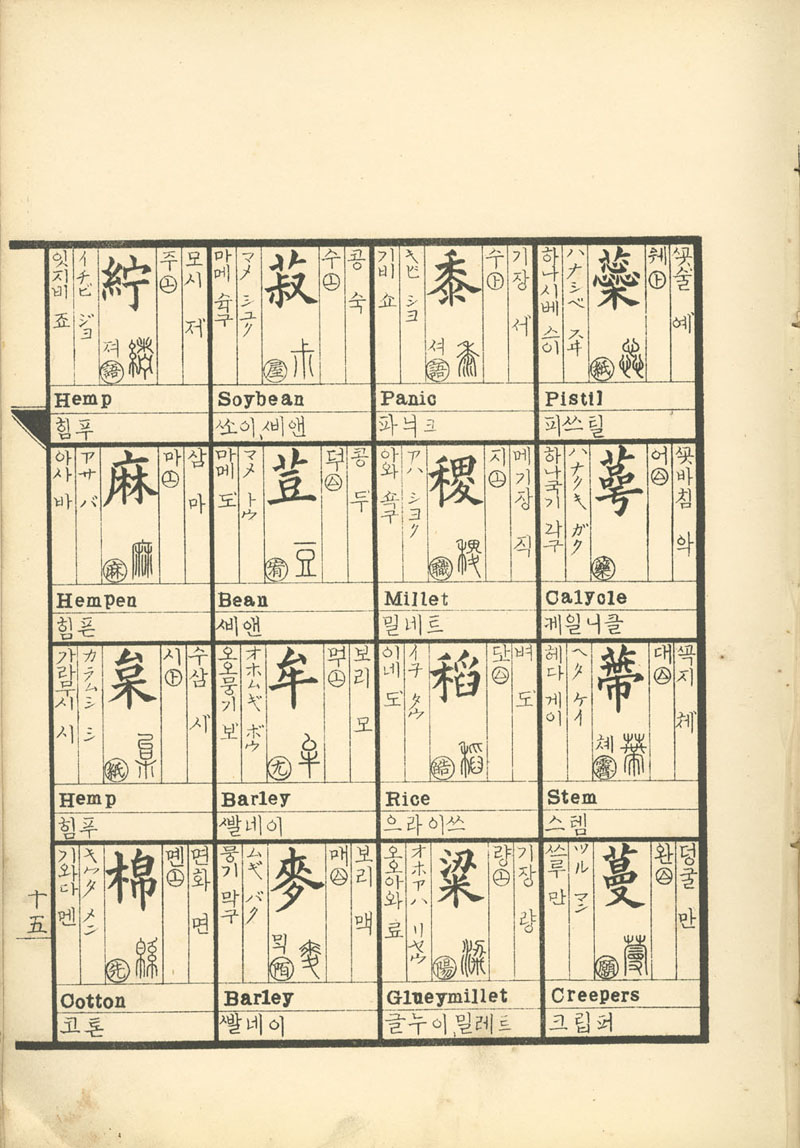 ᄭᅩᆺ술 예
웨 ㊤
蘂
紙
ハナシベ スヰ
하나시베 스이
Pistil
피쓰틸
ᄭᅩᆺ바침 악
어 ㊇
萼
藥
ハナクキ ガク
하나국기 각구
Calycle
케일니클
ᄭᅩᆨ지 체
대
蔕
체 霽
ヘタ ケイ
헤다 게이
Stem
스템
덩굴 만
완
蔓
願
ツル マン
쓰루 만
Creepers
크립퍼
기장 서
수
黍
셔 語
キビ シヨ
기비 쇼
Panic
파늬크
메기장 직
지 ㊤
稷
職
アハ シヨク
아와 쇽구
Millet
밀네트
벼 도
稻
皓
イネ タウ
이네 도
Rice
으라이쓰
기장 량
량 ㊤
粱
陽
オホアハ リヤウ
오오아와 료
Glueymillet
글누이,밀레트
콩 숙
수 ㊤
菽
屋
マメ シユク
마메 슉구
Soybean
쏘이,ᄲᅵ앤
콩 두
荳
宥
マメ トウ
마메 도
Bean
ᄲᅵ앤
보리 모
牟
尤
オホムギ ボウ
오오뭉기 보
Barley
ᄲᅡᆯ네이
보리 맥
매
麥
믹 陌
ムギ バク
뭉기 막구
Barley
ᄲᅡᆯ네이
모시 저
주 ㊤
紵
져 語
イチビ ジヨ
잇지비 죠
Hemp
힘푸
삼 마
마 ㊤
麻
麻
アサ バ
아사 바
Hempen
힘픈
수삼 시
시
枲
紙
カラムシ シ
가라무시 시
Hemp
힘푸
면화 면
멘 ㊤
棉
先
キワタ メン
기와다 멘
Cotton
코튼
十五